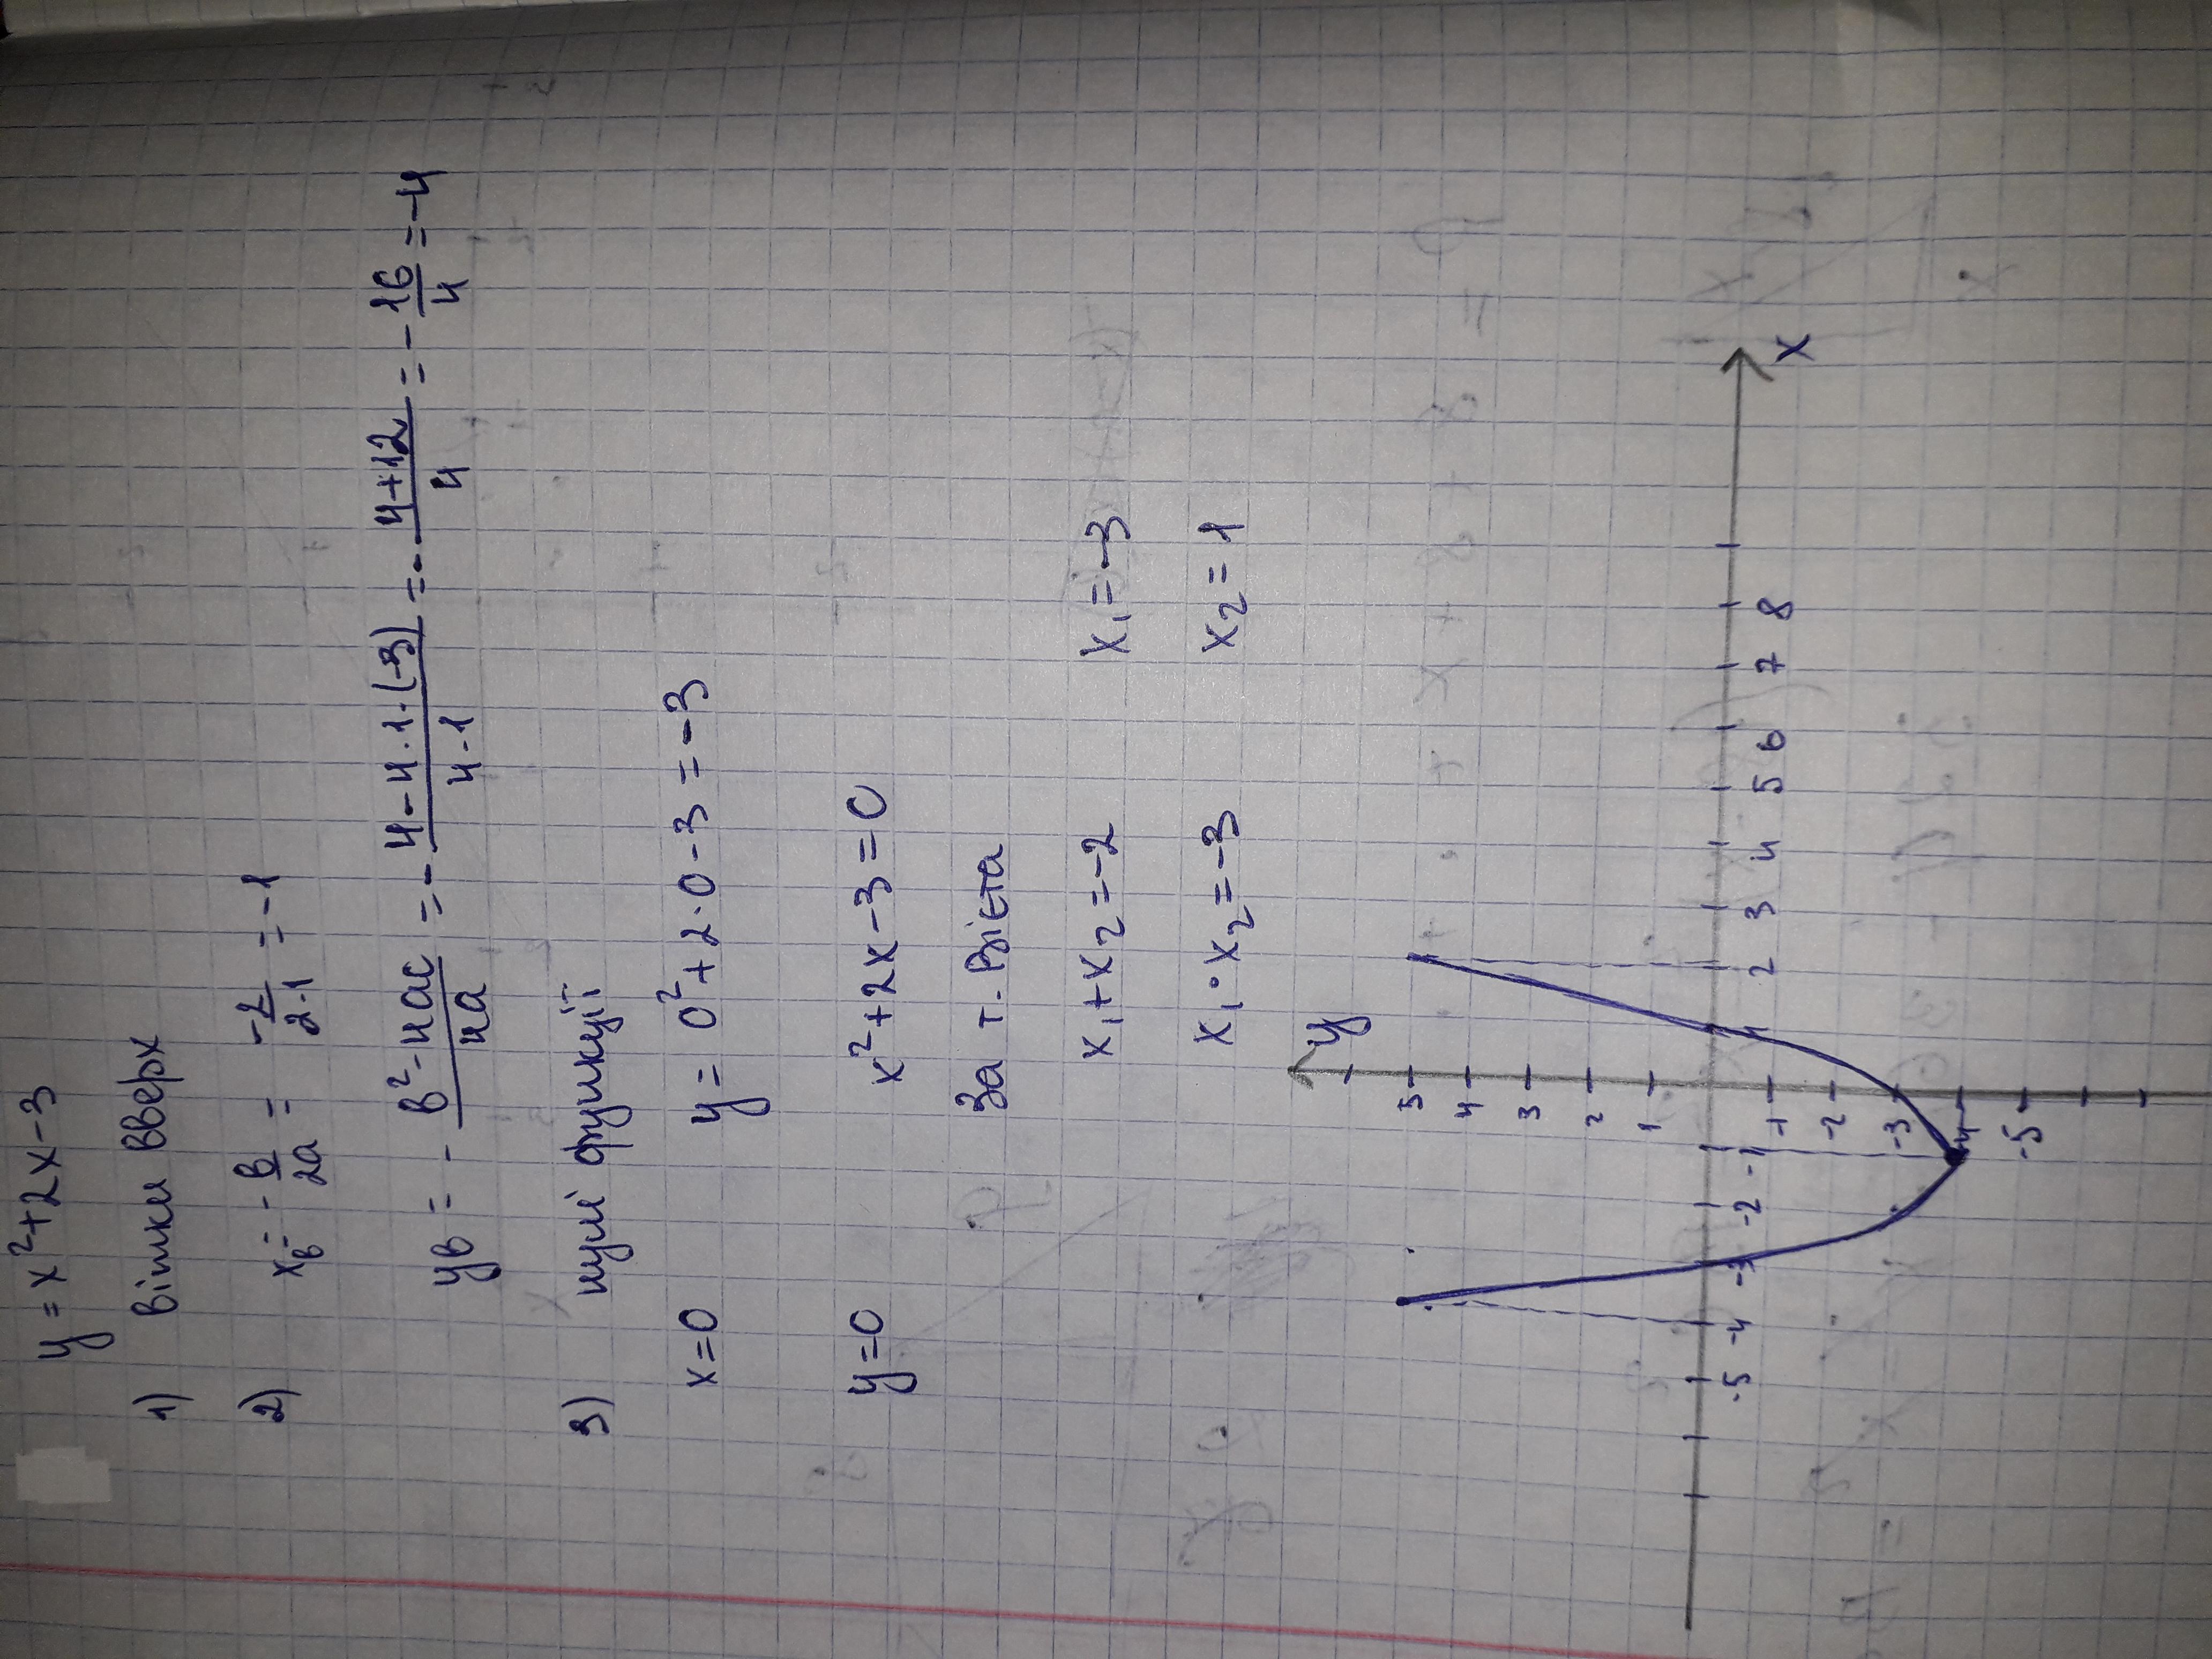 y = x² + 2x - 3
1) вітки вверх
2) xв = - в/2a = -2/2·1 = -1
yв = - в² - 4ac/4a = - 4 - 4·1·(-3)/4·1 = - 4+12/4 = - 16/4 = -4
3) нулі функції
x=0 y = 0² + 2·0 - 3 = -3
y=0 x² + 2x - 3 = 0
За т. Вієта
x₁ + x₂ = -2 x₁ = -3
x₁ · x₂ = -3 x₂ = 1
y
5
4
3
2
1
-5 -4 -3 -2 -1 1 2 3 4 5 6 7 8 x
-1
-2
-3
-4
-5